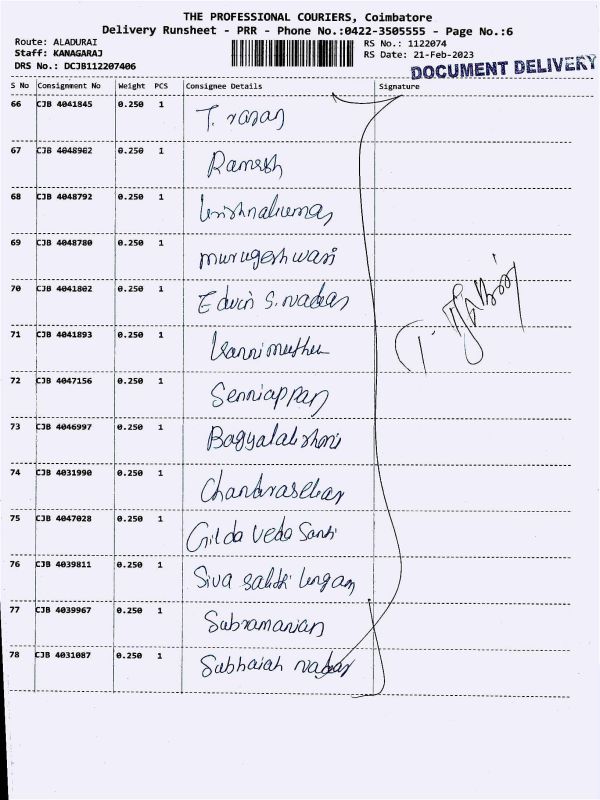 THE PROFESSIONAL COURIERS, Coimbatore
Delivery Runsheet - PRR - Phone No.:0422-3505555 - Page No.:6
Route: ALADURAI
RS No.: 1122074
Staff: KANAGARAJ
RS Date: 21-Feb-2023
DRS No.: DCJB112207406
DOCUMENT DELIVERY
S No Consignment No Weight PCS Consignee Details Signature
66 CJB 4041845 0.250 1 T. rajan
67 CJB 4048962 0.250 1 Ramesh
68 CJB 4048792 0.250 1 krishnakumar
69 CJB 4048780 0.250 1 murugeshwari
70 CJB 4041802 0.250 1 Edwin S. nadar
71 CJB 4041893 0.250 1 kannimuthu
72 CJB 4047156 0.250 1 Senniappan
73 CJB 4046997 0.250 1 Bagyalakshmi
74 CJB 4031990 0.250 1 Chandrasekar
75 CJB 4047028 0.250 1 Gilda Veda
76 CJB 4039811 0.250 1 Siva sakthi lingam
77 CJB 4039967 0.250 1 Subramanian
78 CJB 4031087 0.250 1 Subhaiah nadar